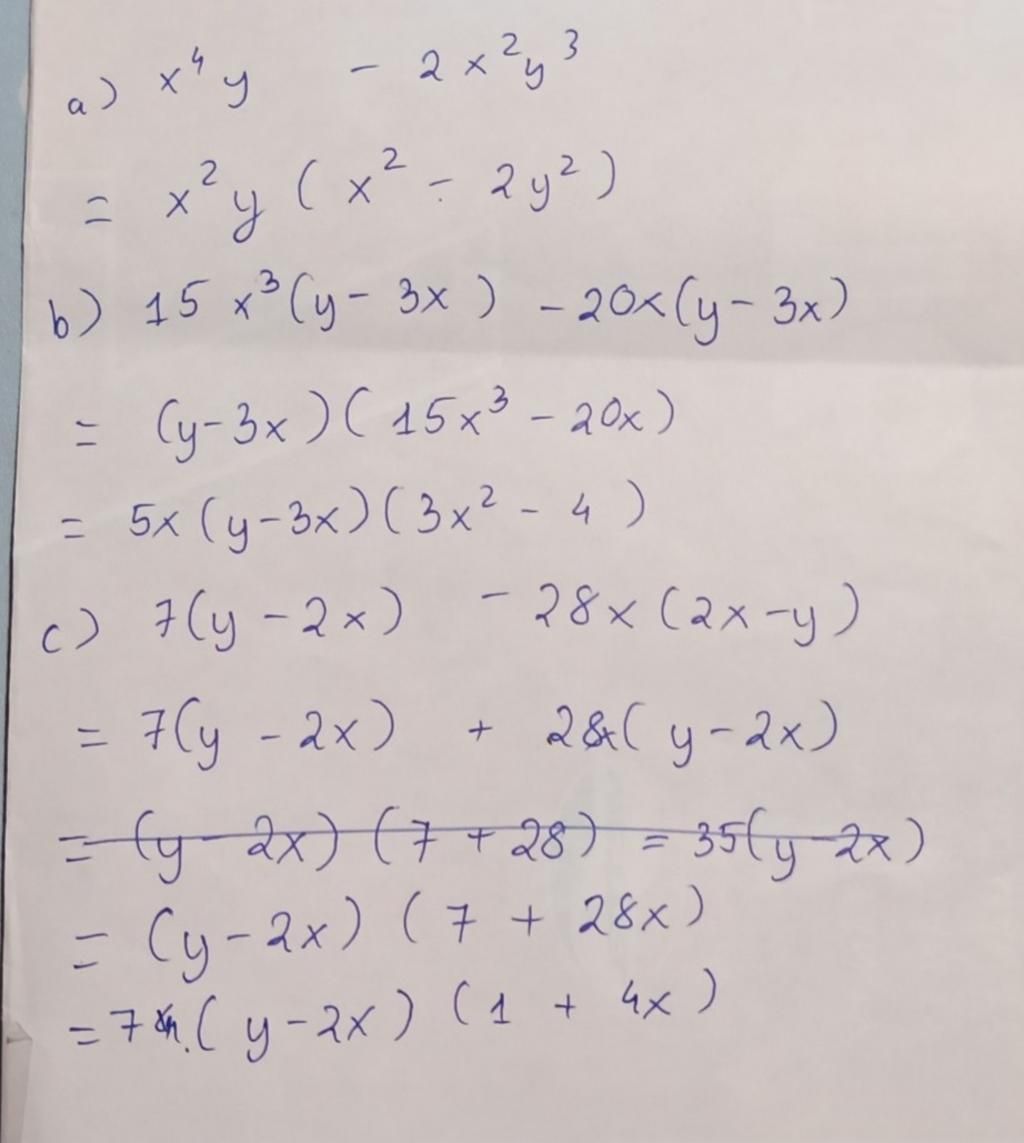 a) x⁴y - 2x²y³
= x²y (x² - 2y²)
b) 15x³(y - 3x) - 20x(y - 3x)
= (y - 3x)(15x³ - 20x)
= 5x(y - 3x)(3x² - 4)
c) 7(y - 2x) - 28x(2x - y)
= 7(y - 2x) + 28x(y - 2x)
= (y - 2x)(7 + 28) = 35(y - 2x)
= (y - 2x)(7 + 28x)
= 7(y - 2x)(1 + 4x)